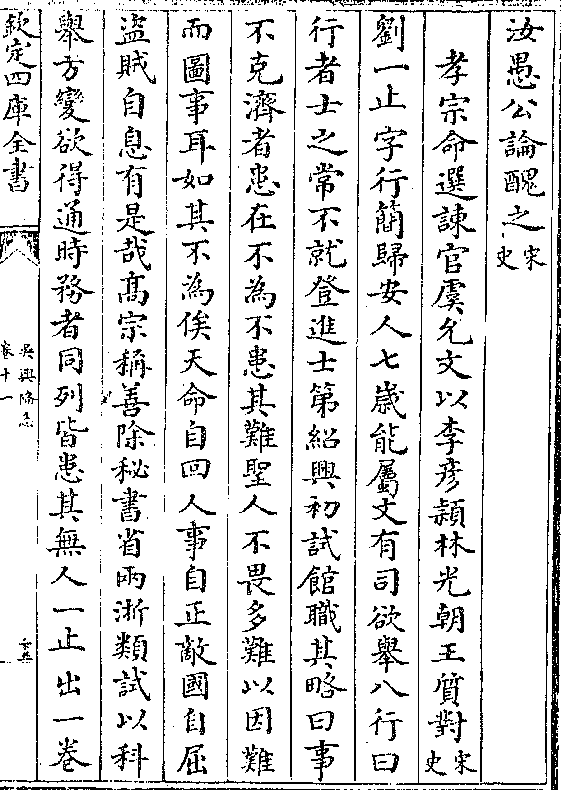 汝愚公論醜之宋史
孝宗命選諫官虞允文以李彦頴林光朝王質對宋史
劉一止字行簡歸安人七歲能屬文有司欲舉八行曰
行者士之常不就登進士第紹興初試館職其略曰事
不克濟者患在不為不患其難聖人不畏多難以因難
而圖事耳如其不為俟天命自回人事自正敵國自屈
盜賊自息有是哉髙宗稱善除秘書省兩浙類試以科
舉方變欲得通時務者同列皆患其無人一止出一卷
欽定四庫全書
吳興備志
卷十一